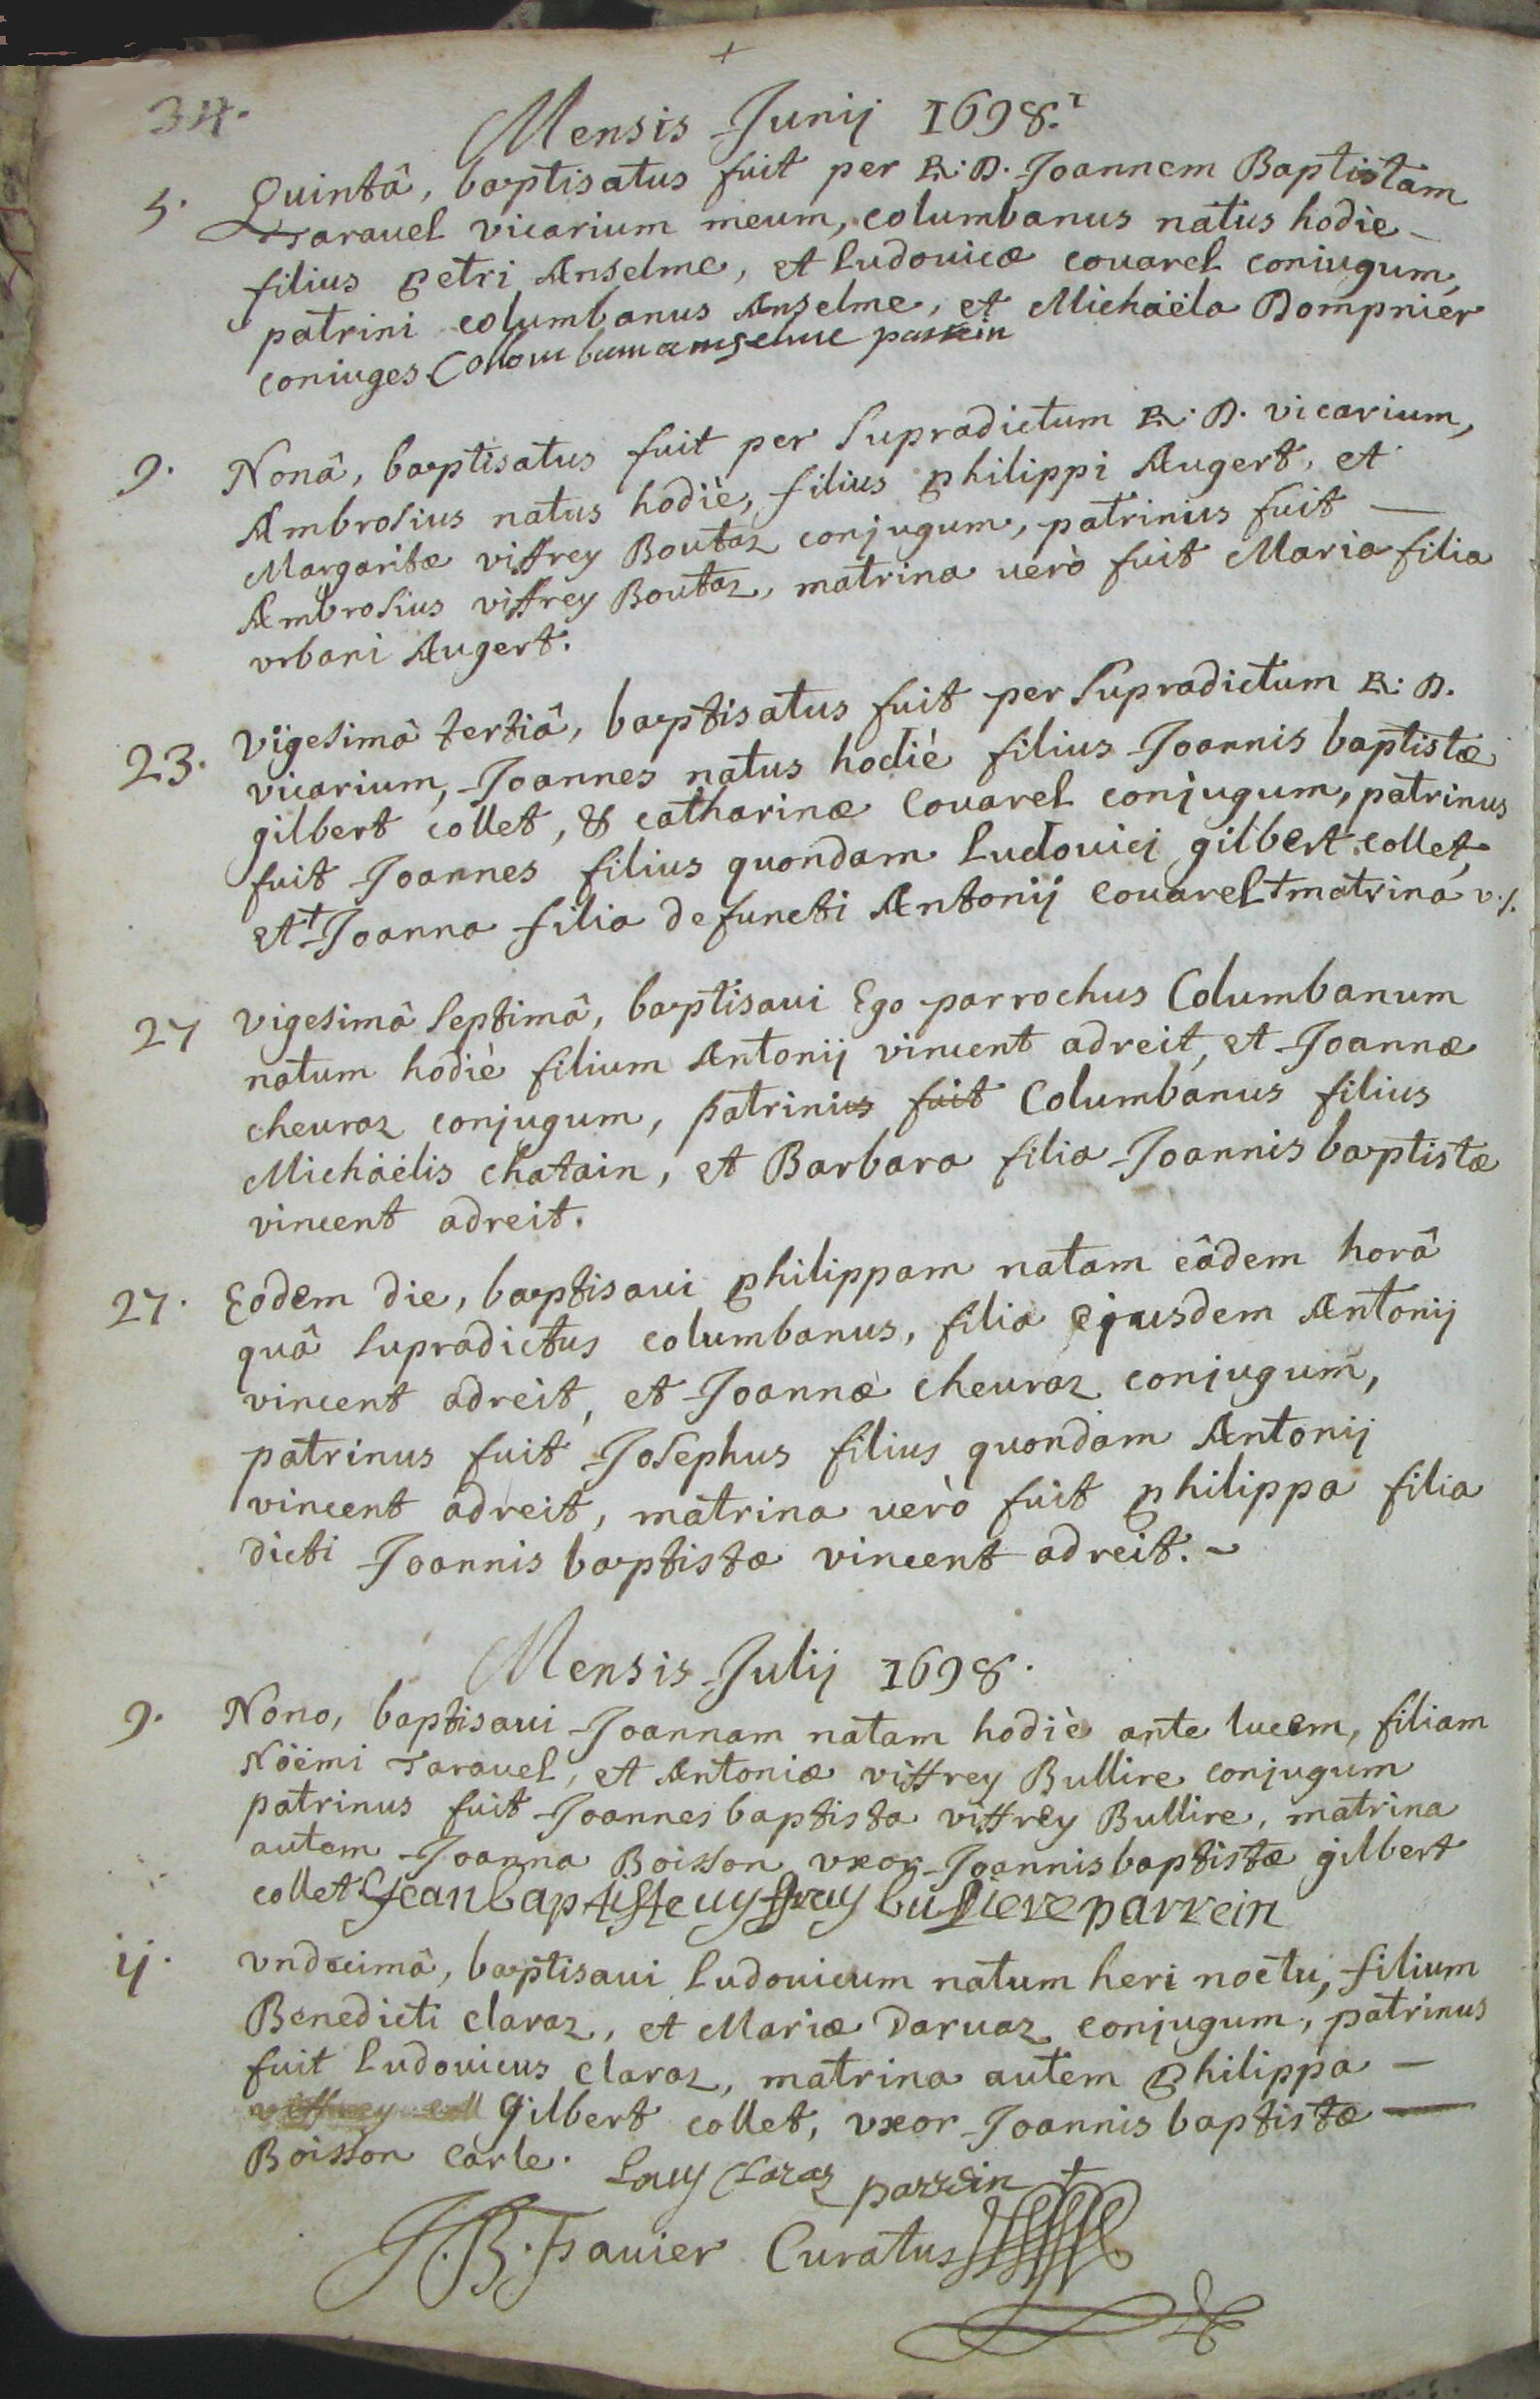 34.
Mensis Junij 1698.
5. Quintâ, baptisatus fuit per R: D. Joannem Baptistam
Tarauel vicarium meum, columbanus natus hodie
filius petri Anselme, et Ludouicæ couarel coniugum,
patrini columbanus Anselme, et Michaëla Dompnier
coniuges Collombam amselme parrein
9. Nonâ, baptisatus fuit per supradictum R: D. vicarium,
Ambrosius natus hodiè, filius philippi Augert, et
Margaritæ viffrey Boutaz conjugum, patrinus fuit —
Ambrosius viffrey Boutaz, matrina uerò fuit Maria filia
vrbani Augert.
23. Vigesimâ tertiâ, baptisatus fuit per supradictum R: D.
vicarium, Joannes natus hodiè filius Joannis baptistæ
gilbert collet, & catharinæ Couarel conjugum, patrinus
fuit Joannes filius quondam Ludouici gilbert collet,
et + Joanna filia defuncti Antonij Couarel + matrina v.f.
27 Vigesimâ septimâ, baptisaui Ego parrochus Columbanum
natum hodiè filium Antonij vincent adreit, et Joannæ
cheuraz conjugum, patrinius fuit Columbanus filius
Michäelis chatain, et Barbara filia Joannis baptistæ
vincent adreit.
27. Eodem die, baptisaui philippam natam eâdem horâ
quâ supradictus columbanus, filia ejusdem Antonij
vincent adreit, et Joannæ cheuraz conjugum,
patrinus fuit Josephus filius quondam Antonij
vincent adreit, matrina uerò fuit philippa filia
dicti Joannis baptistæ vincent adreit.
Mensis Julij 1698.
9. Nono, baptisaui Joannam natam hodiè ante lucem, filiam
Nöemi Tarauel, et Antoniæ viffrey Bullire conjugum
patrinus fuit Joannes baptista viffrey Bullire, matrina
autem Joanna Boisson vxor Joannis baptistæ gilbert
collet Jean baptiste uyffrey bulliere parrein
ij. vndecimâ, baptisaui Ludouicum natum heri noctu, filium
Benedicti claraz, et Mariæ Daruaz conjugum, patrinus
fuit Ludouicus claraz, matrina autem philippa —
viffrey coll Gilbert collet, vxor Joannis baptistæ —
Boisson carle. Louy Claraz parrein +
J. B. Fauier Curatus